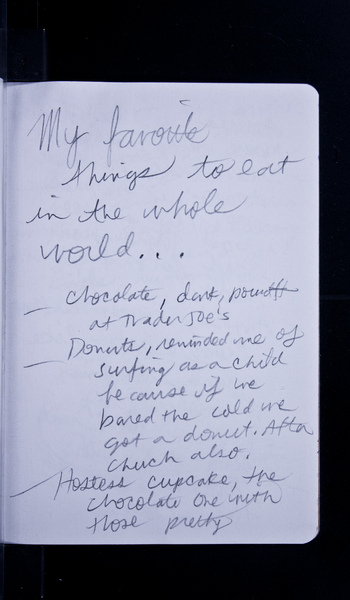 My favorite
things to eat
in the whole
world...
— Chocolate, dark,
at Trader Joe's
— Donuts, reminded me of
surfing as a child
because if we
bared the cold we
got a donut. After
church also.
— Hostess cupcake, the
chocolate one with
those pretty